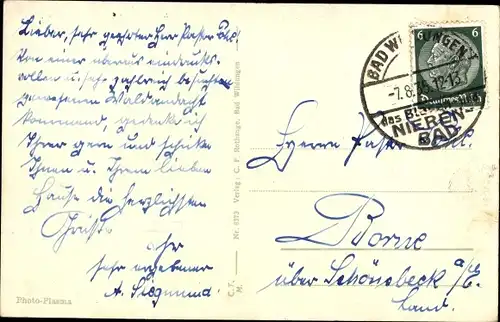 Lieber, sehr geehrter Herr Pastor
Von einer überaus eindrucks-
vollen u. sehr zahlreich besuchten
Waldandacht
kommend, gedenke ich
Ihrer gern und schicke
Ihnen u. Ihrem lieben
Hause die herzlichsten
Grüsse
Ihr
sehr ergebener
A. Siegmund.
Photo-Plasma
C. F. H.
Nr. 4372 Verlag: C. F. Hothenge, Bad Wildungen
6 6
BAD WILDUNGEN
-7.8. 12-13
das
NIEREN-
BAD
Herrn Pastor
Borne
über Schönebeck a/E.
Land.